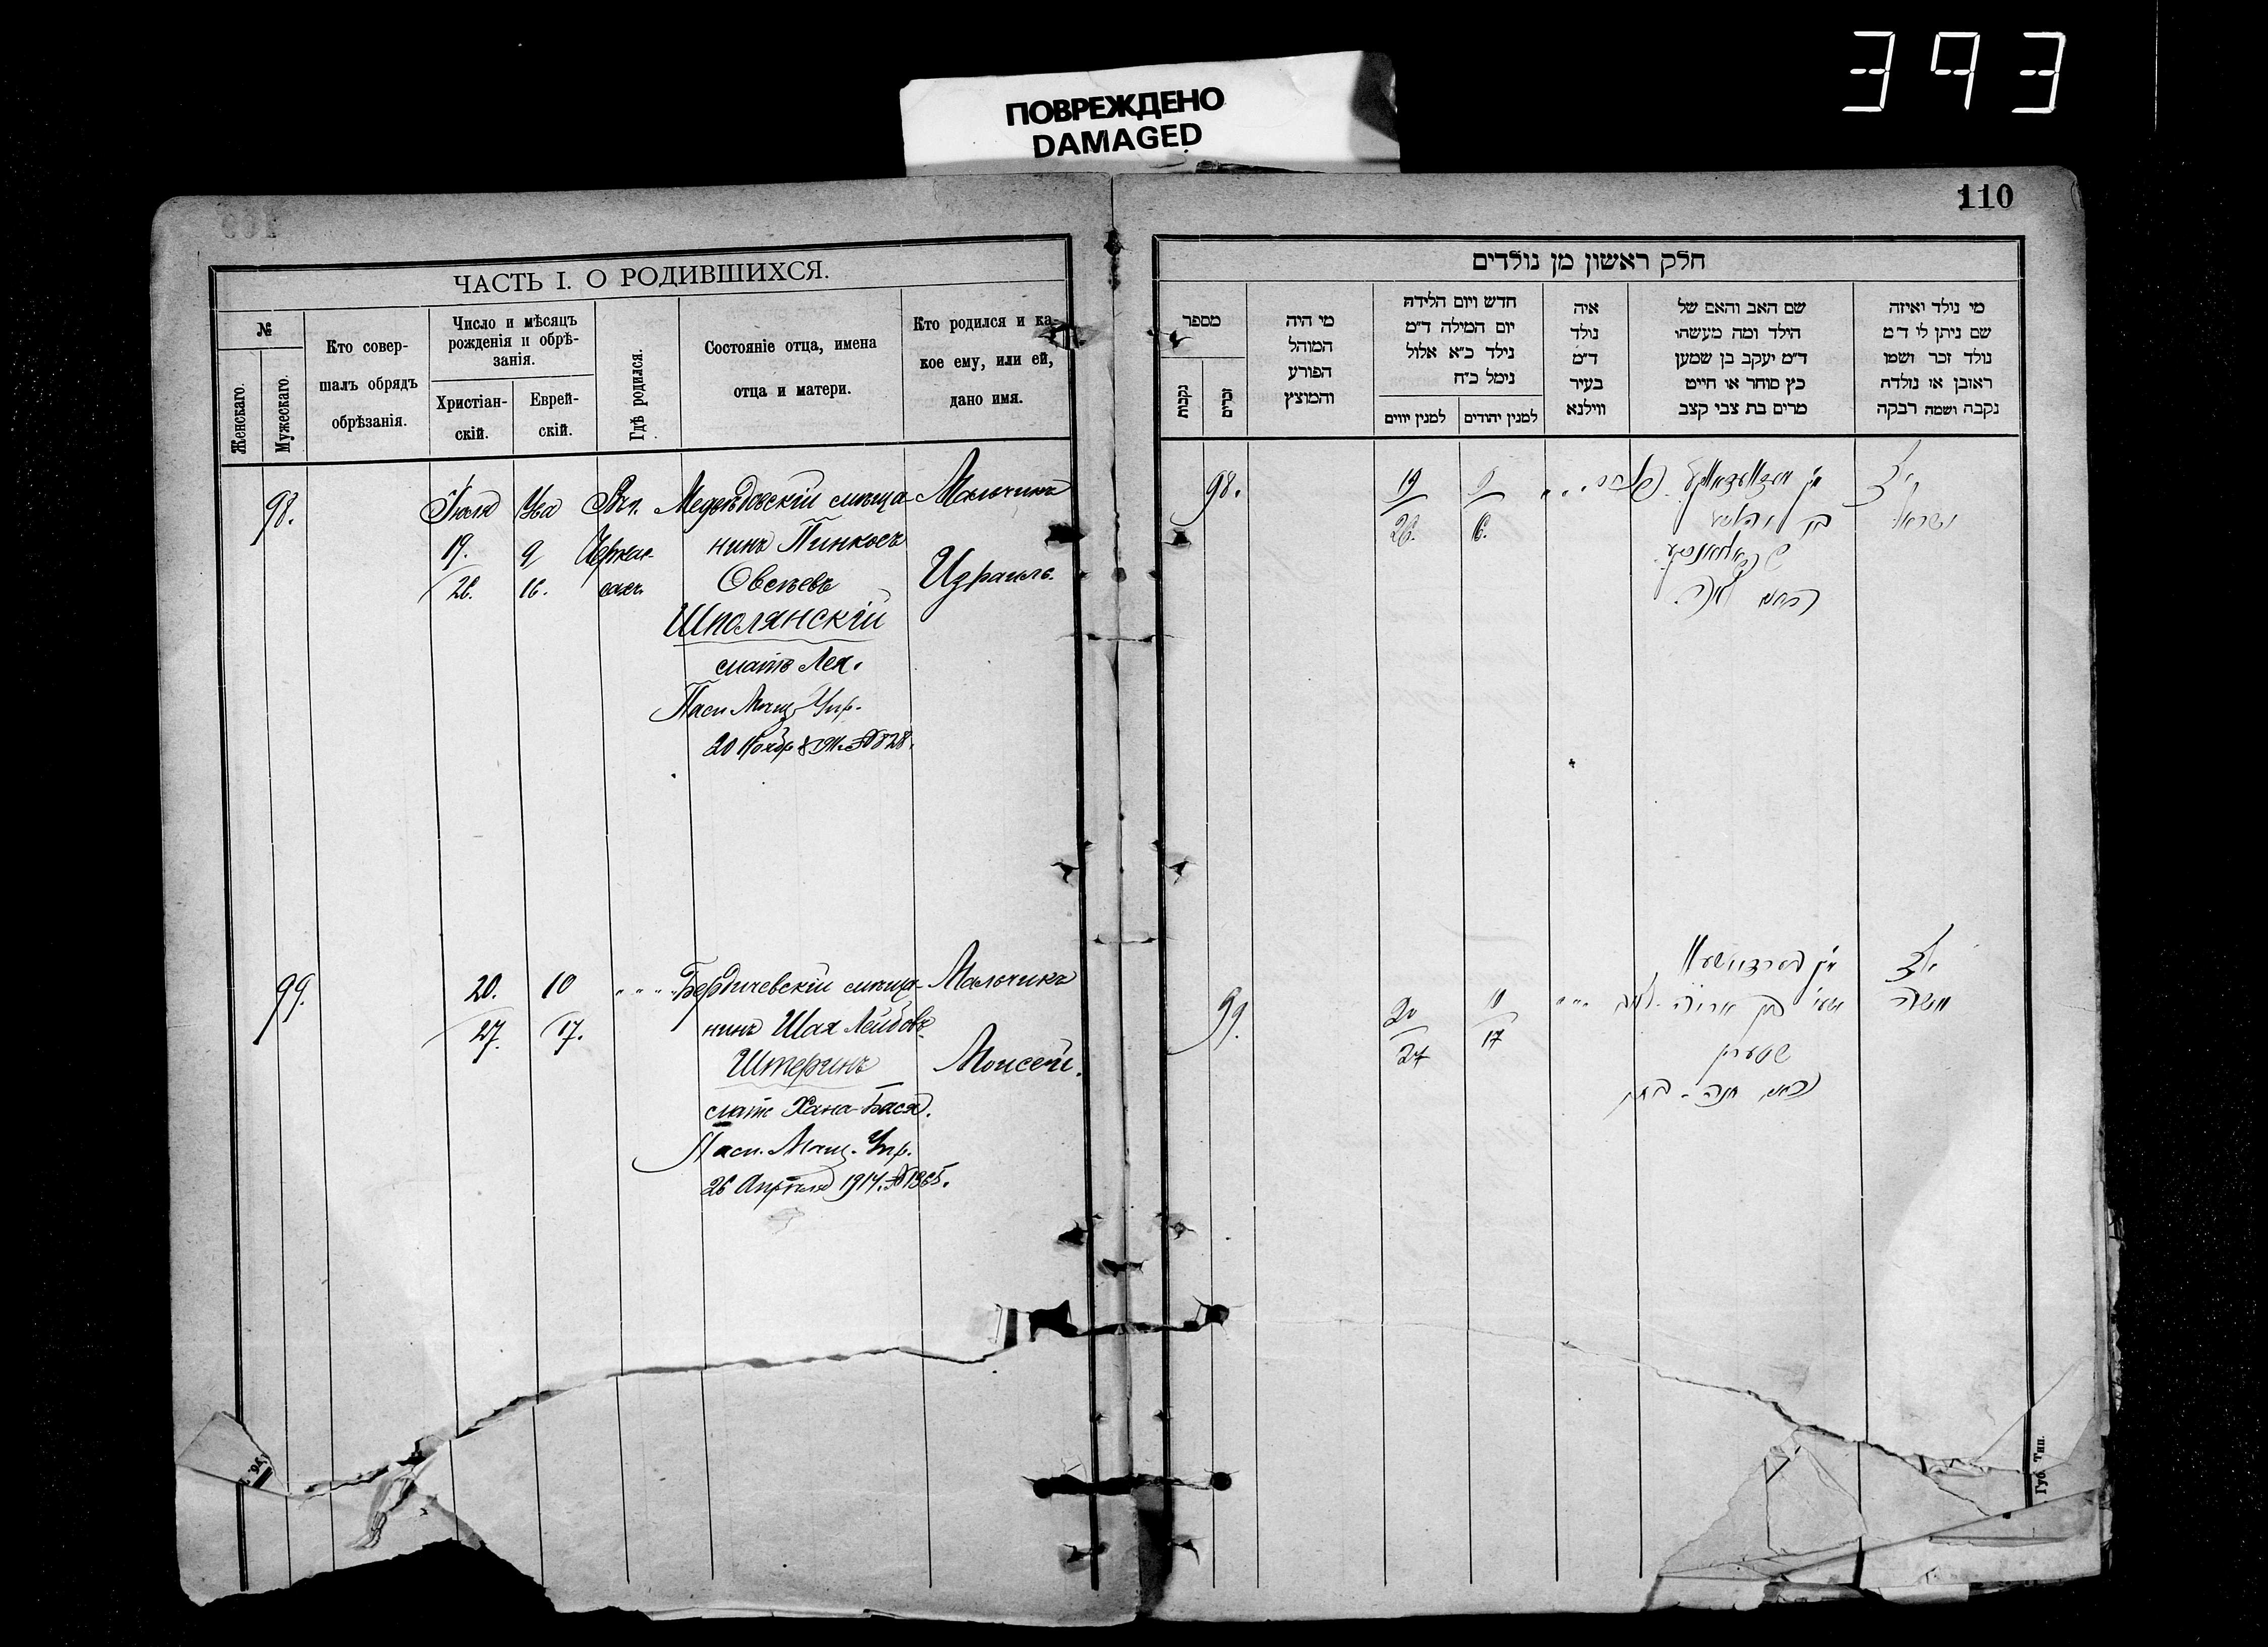 393
ПОВРЕЖДЕНО
DAMAGED
110
ЧАСТЬ I. О РОДИВШИХСЯ.
№
Женскаго.
Мужескаго.
Кто совер-
шалъ обрядъ
обрѣзанія.
Число и мѣсяцъ
рожденія и обрѣ-
занія.
Христіан-
скій.
Еврей-
скій.
Гдѣ родился.
Состояніе отца, имена
отца и матери.
Кто родился и ка-
кое ему, или ей,
дано имя.
98.
Іюля
19.
26.
9
16.
Черкас-
сахъ
Медвѣдовскій мѣща-
нинъ Пинхосъ
Овсѣевъ
Шполянскій
мать Лея.
Пасп. Мѣщ. Упр.
20 Ноябр № 828.
Мальчикъ
Израиль.
99.
20.
27.
10
17.
" " " "
Бердичевскій мѣща-
нинъ Шая Лейбовъ
Штеринъ
мать Хана-Бася.
Пасп. Мѣщ. Упр.
26 Апрѣля 1914. № 1365.
Мальчикъ
Моисей.
חלק ראשון מן נולדים
מספר
נקבות
זכרים
מי היה
המוהל
הפורע
והמוצץ
חדש ויום הלידה
יום המילה ד״מ
נילד כ״א אלול
נימל כ״ח
למנין יווים
למנין יהודים
איה
נולד
ד״מ
בעיר
ווילנא
שם האב והאם של
הילד ומה מעשהו
ד״מ יעקב בן שמען
כץ סוחר או חייט
מרים בת צבי קצב
מי נולד ואיזה
שם ניתן לו ד״מ
נולד זכר ושמו
ראובן או נולדה
נקבה ושמה רבקה
98.
19
26.
9
16.
ילד
ישראל
99.
20
27
10
17
שטערין
ילד
משה
Губ. Тип.